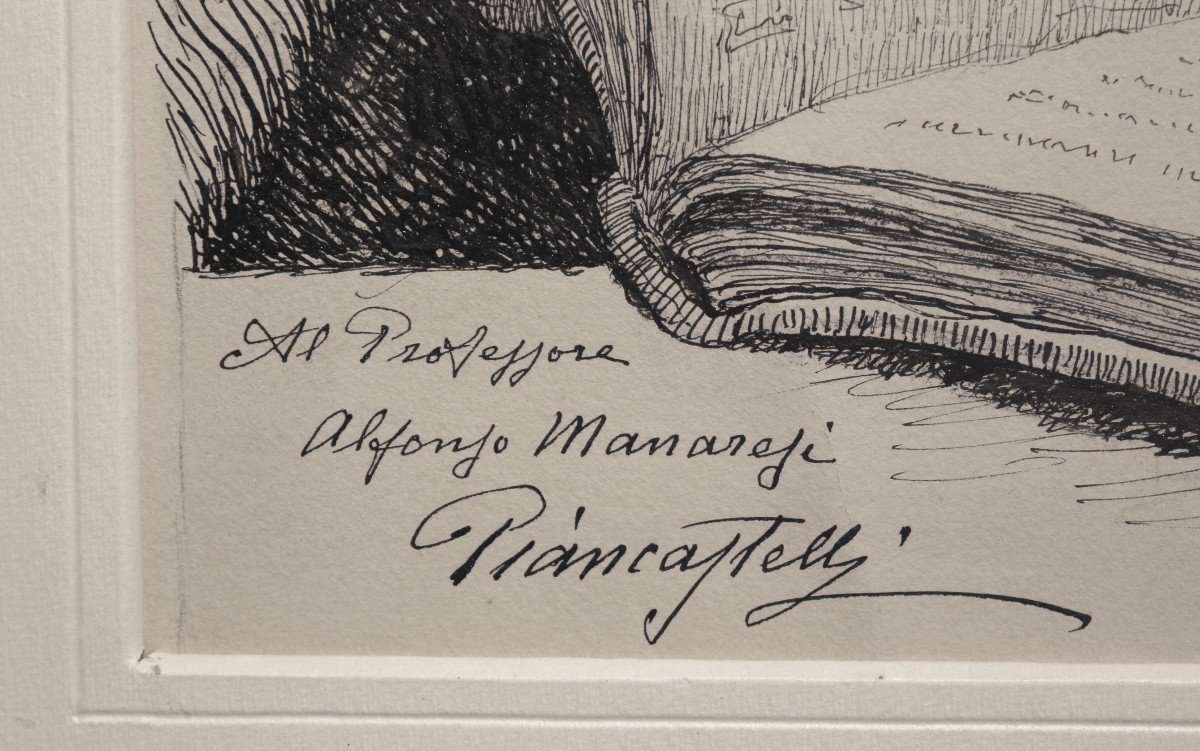 Al Professore
Alfonso Manaresi
Piancastelli